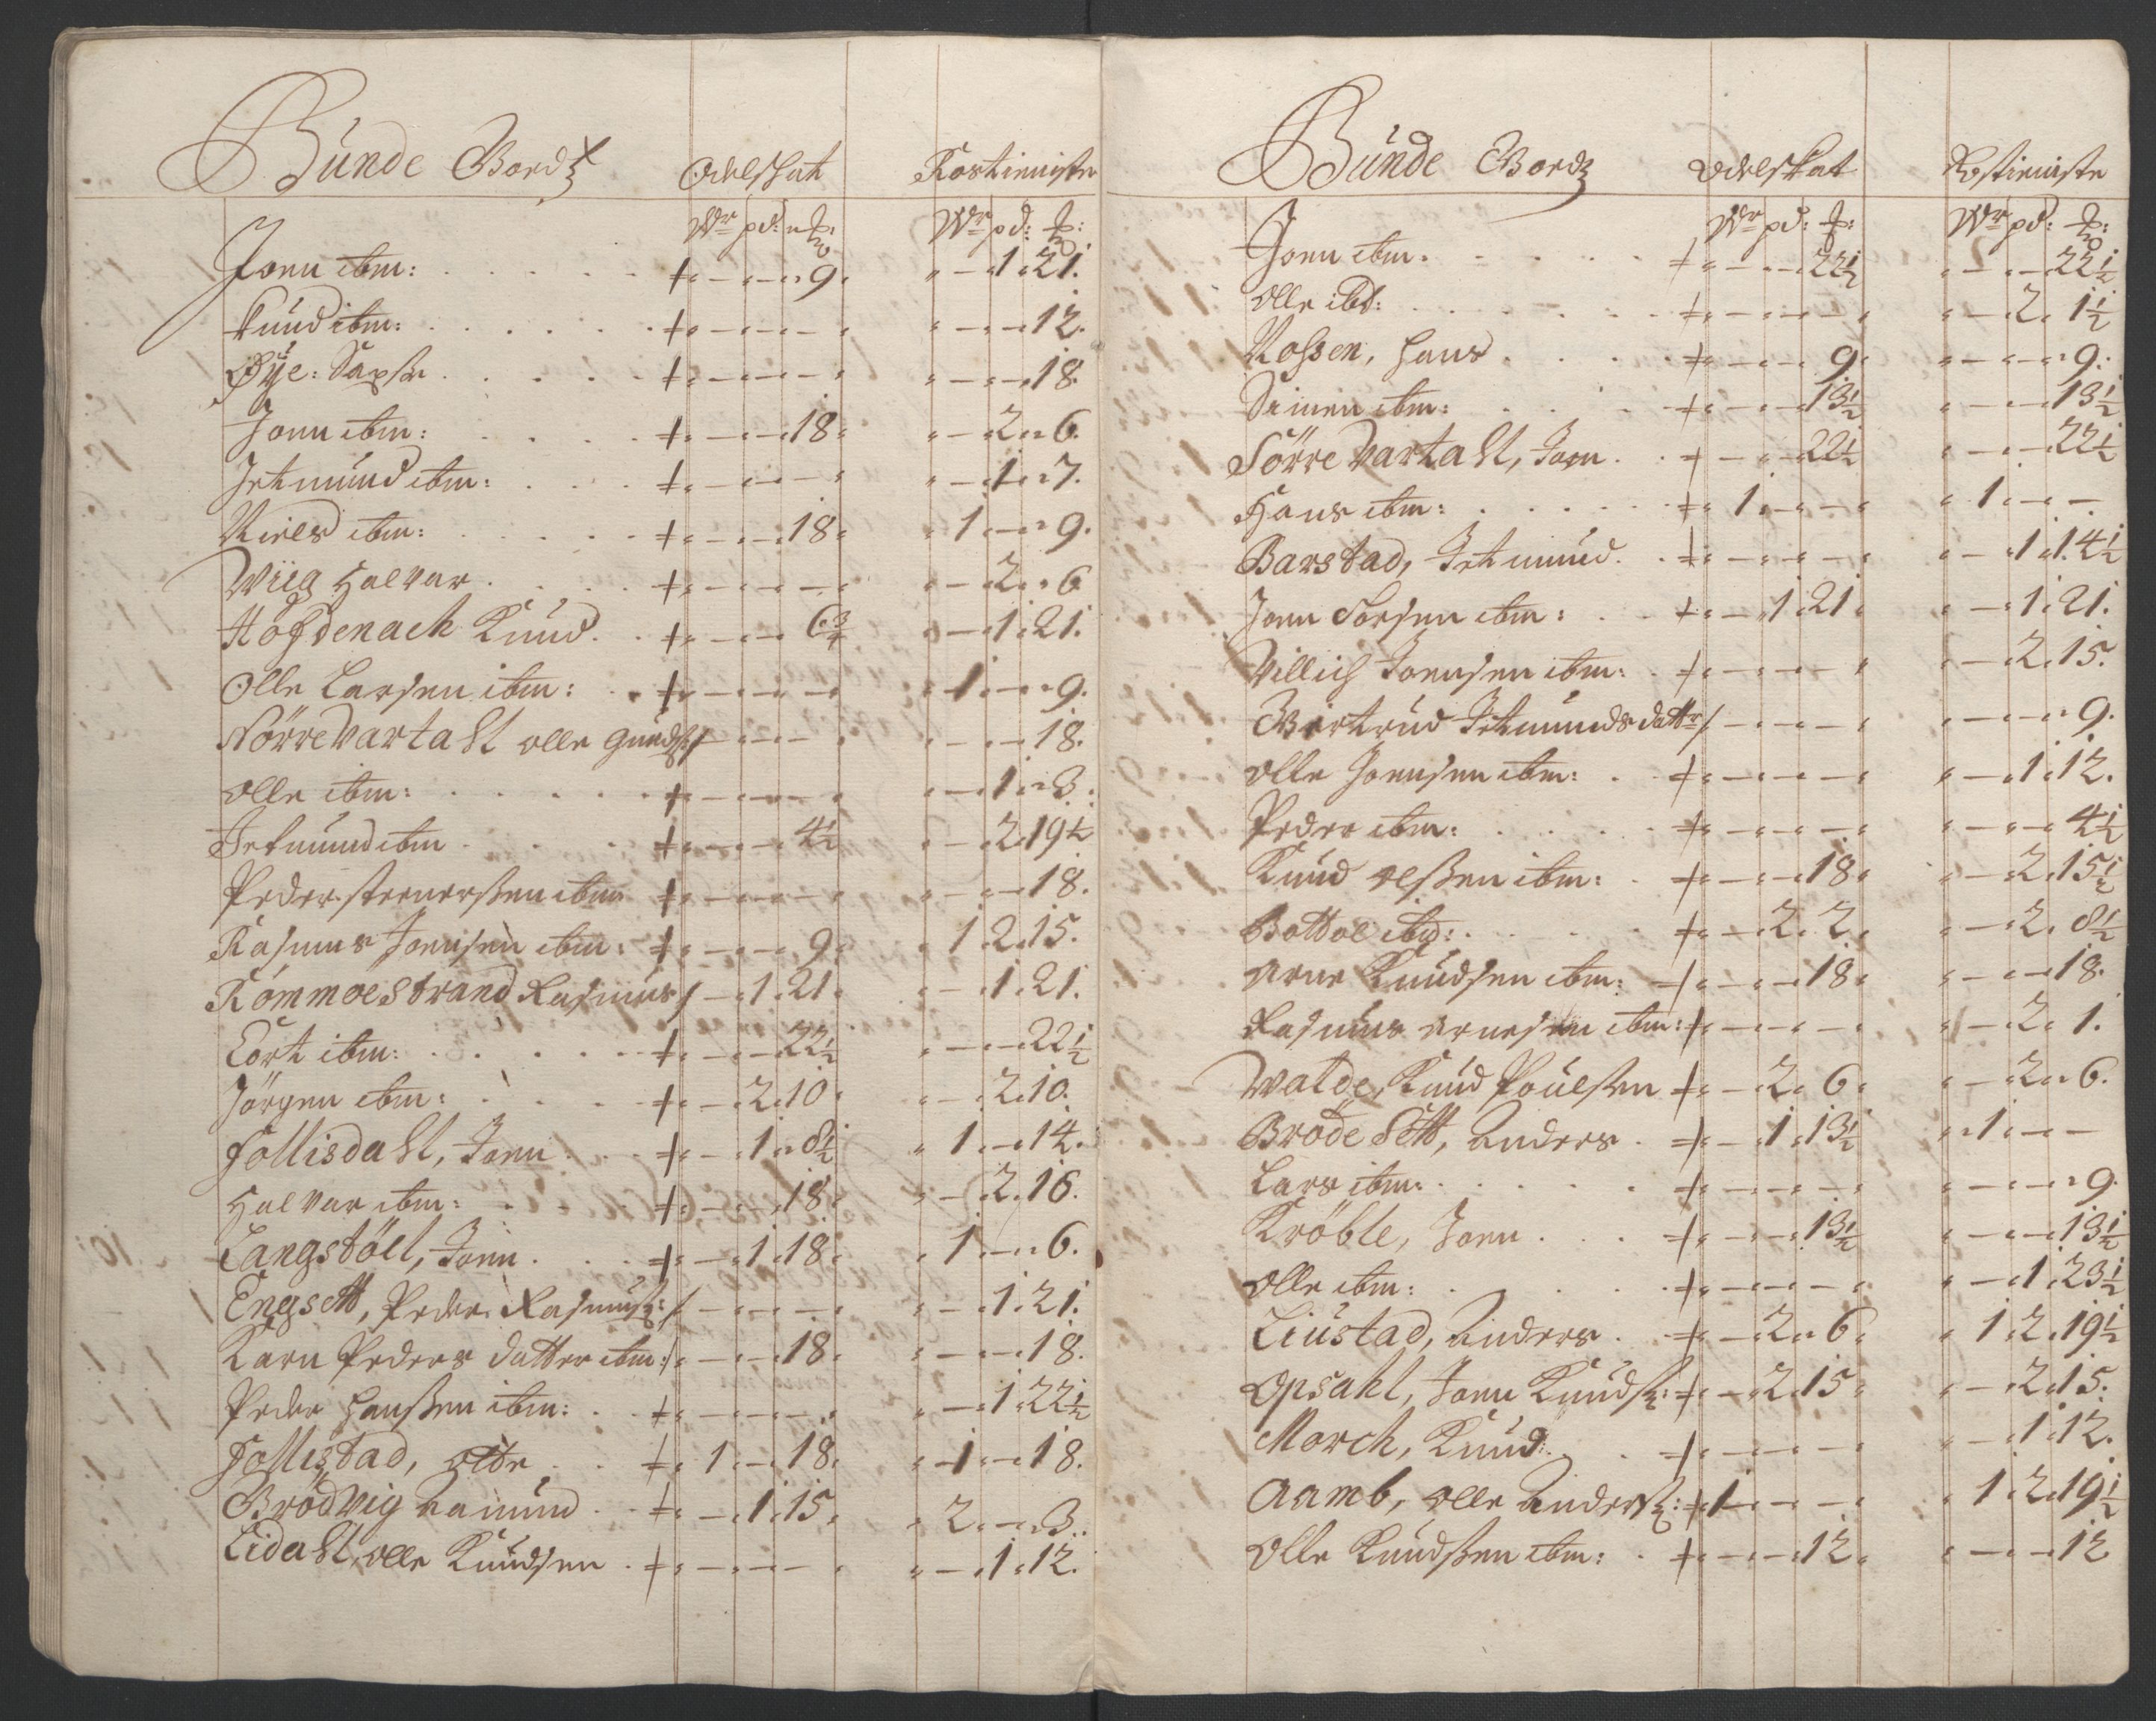 Bunde Gords Odelskat Rostieniste
Wr pd: Wr pd:
Jonn ibm: 9 1 21.
Knud ibm: 12.
Øÿe: 18.
Jonn ibm: 18 2 6.
Jetmund ibm: 1 7.
Niels ibm: 18 1 9.
Wiig Halvar 2 6
Höfdenach Knud 6¾ 1 21.
Olle Larsen ibm: 1 9.
Nörre Vartall olle 18.
olle ibm: 1 3.
Jetmund ibm 4½ 2 19½
Peder ibm 18.
Rasmus Jonnsen ibm: 9 1 2 15.
Rommoestrand Rasmus 1 21 1 21.
Cort ibm: 22½ 22½
Jörgen ibm: 2 10 2 10.
Follisdall, Jonn 1 8½ 1 14.
Halvar ibm: 18 2 16.
Langstöel, Jonn 1 18 1 6.
Engsett, Peder Rasmusß: 1 21.
Karn Peders datter ibm: 18 18.
Peder Hanßen ibm: 1 22½
Follestad, 1 18 1 18.
Brödvig Aamund 1 15 2 3.
Lidall, olle Knudsen 1 12.
Bunde Gords Odelskat Rostieniste
Wr pd: Wr pd:
Jonn ibm. 22½ 22½
Olle ibd: 2 1½
Noßen, Hans 9 9.
Simen ibm: 13½ 13½
Sörre Vartall, Jonn 22½ 22½
Hans ibm: 1 1
Barstad, Jetmund 1 14½
Jonn ibm: 1 21 1 21.
Villich Jonnsen ibm: 2 15.
Giertrud Jetmunds datter 9.
Olle Jonnsen ibm: 1 12.
Peder ibm: 4½
Knud olßen ibm: 18 2 15½
Bottol ibd: 2 2 2 8½
Arne Knudsen ibm: 18 18.
Rasmus arnesen ibm: 2 1.
Walde, Knud Poulßen 2 6 2 6.
Brode Sett, Anders 1 13½ 1
Lars ibm: 9.
Kröble, Jonn 13½ 13½
Olle ibm: 1 23½
Liustad, Anders 2 6 1 2 19½
Opsahl, Jonn Knudsß: 2 15 2 15.
Morch, Knud 1 12.
Aamb, olle Andersß: 1 1 2 19½
Olle Knudßen ibm: 12 12